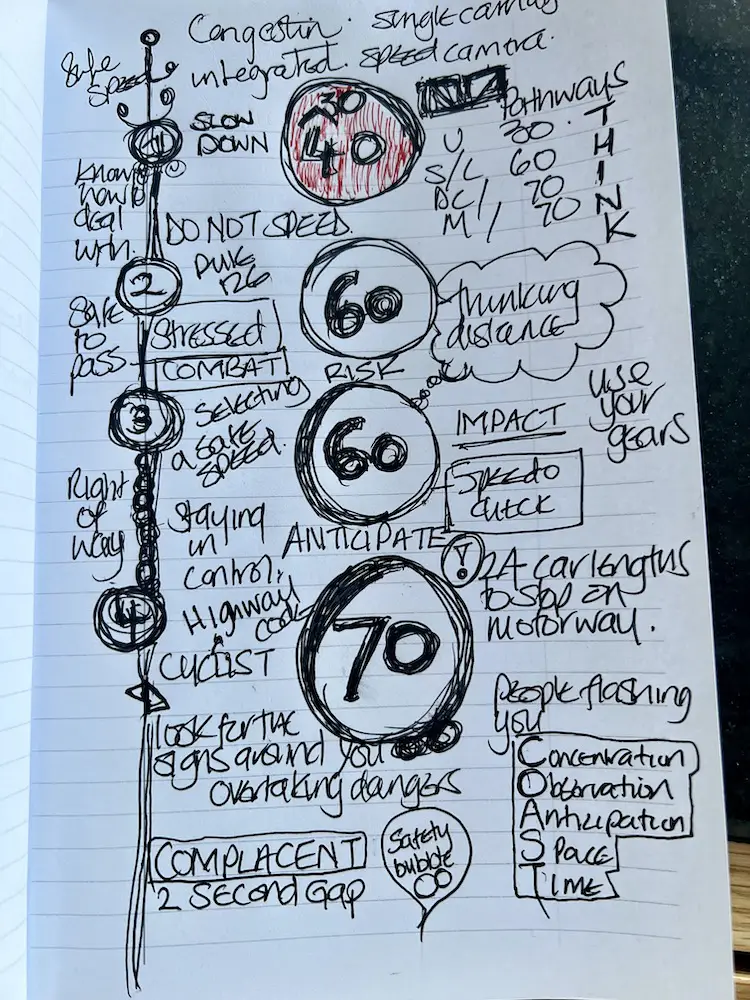 Congestin. single carriag
integrated. speed camera.
Safe
speed
1
SLOW
DOWN
30
40
Pathways
U 30.
S/C 60
DC/ 70
M/ 70
THINK
know
how to
deal
with.
DO NOT SPEED.
2
RULE
126
60
thinking
distance
Safe
to
pass
STRESSED
COMBAT
RISK
3
Selecting
a safe
SPEED.
60
IMPACT
use
your
gears
Speedo
CHECK
Right
of
way
Staying
in
control.
ANTICIPATE
!
24 car lengths
to stop on
motorway.
4
Highway
code
CYCLIST
70
People flashing
you
look for the
signs around you
overtaking dangers
Concentration
Observation
Anticipation
SPACE
TIME
COMPLACENT
2 Second Gap
Safety
bubble